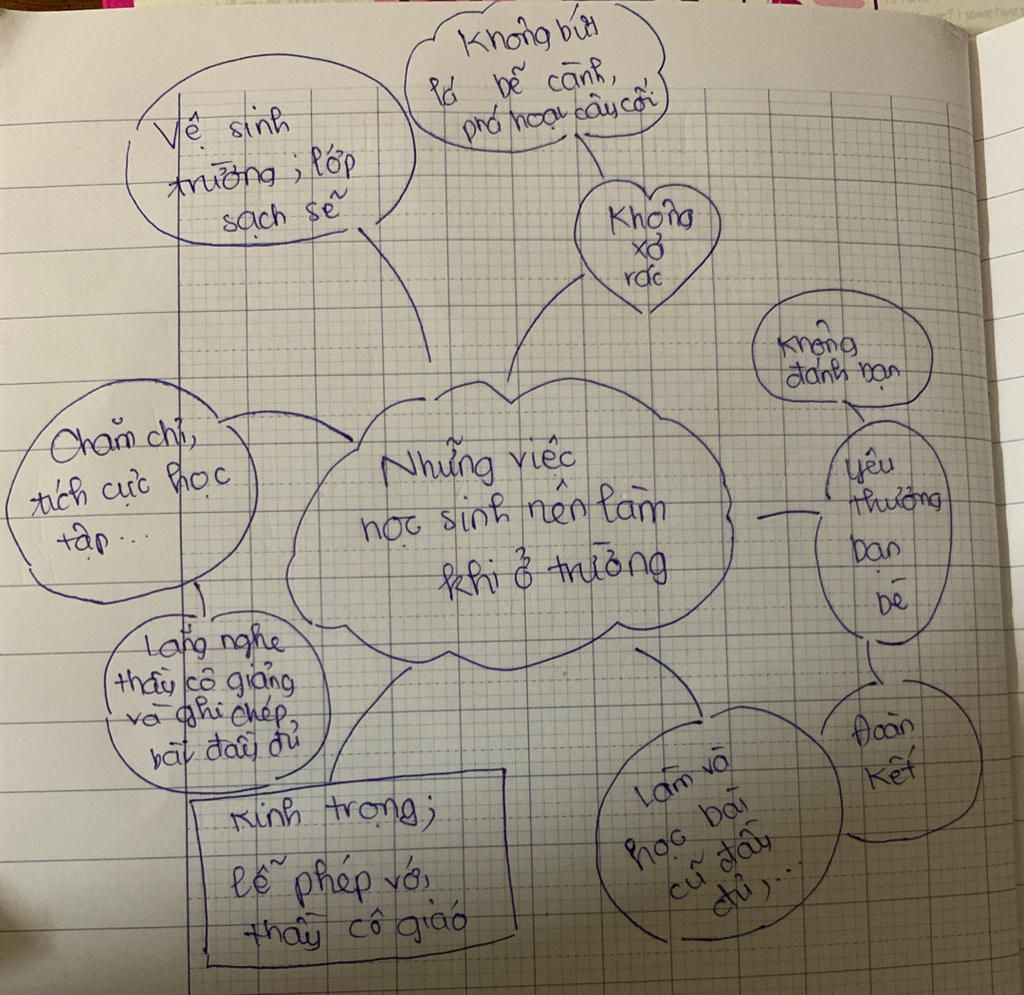 Không bứt
lá bẽ cành,
phá hoại cây cối
Vệ sinh
trường; lớp
sạch sẽ
Không
xả
rác
Không
đánh bạn
Chăm chỉ,
tích cực học
tập...
Những việc
học sinh nên làm
khi ở trường
yêu
thương
bạn
bè
Lắng nghe
thầy cô giảng
và ghi chép
bài đầy đủ
Đoàn
kết
Kính trọng;
lễ phép với
thầy cô giáo
Làm và
học bài
cũ đầy
đủ,...